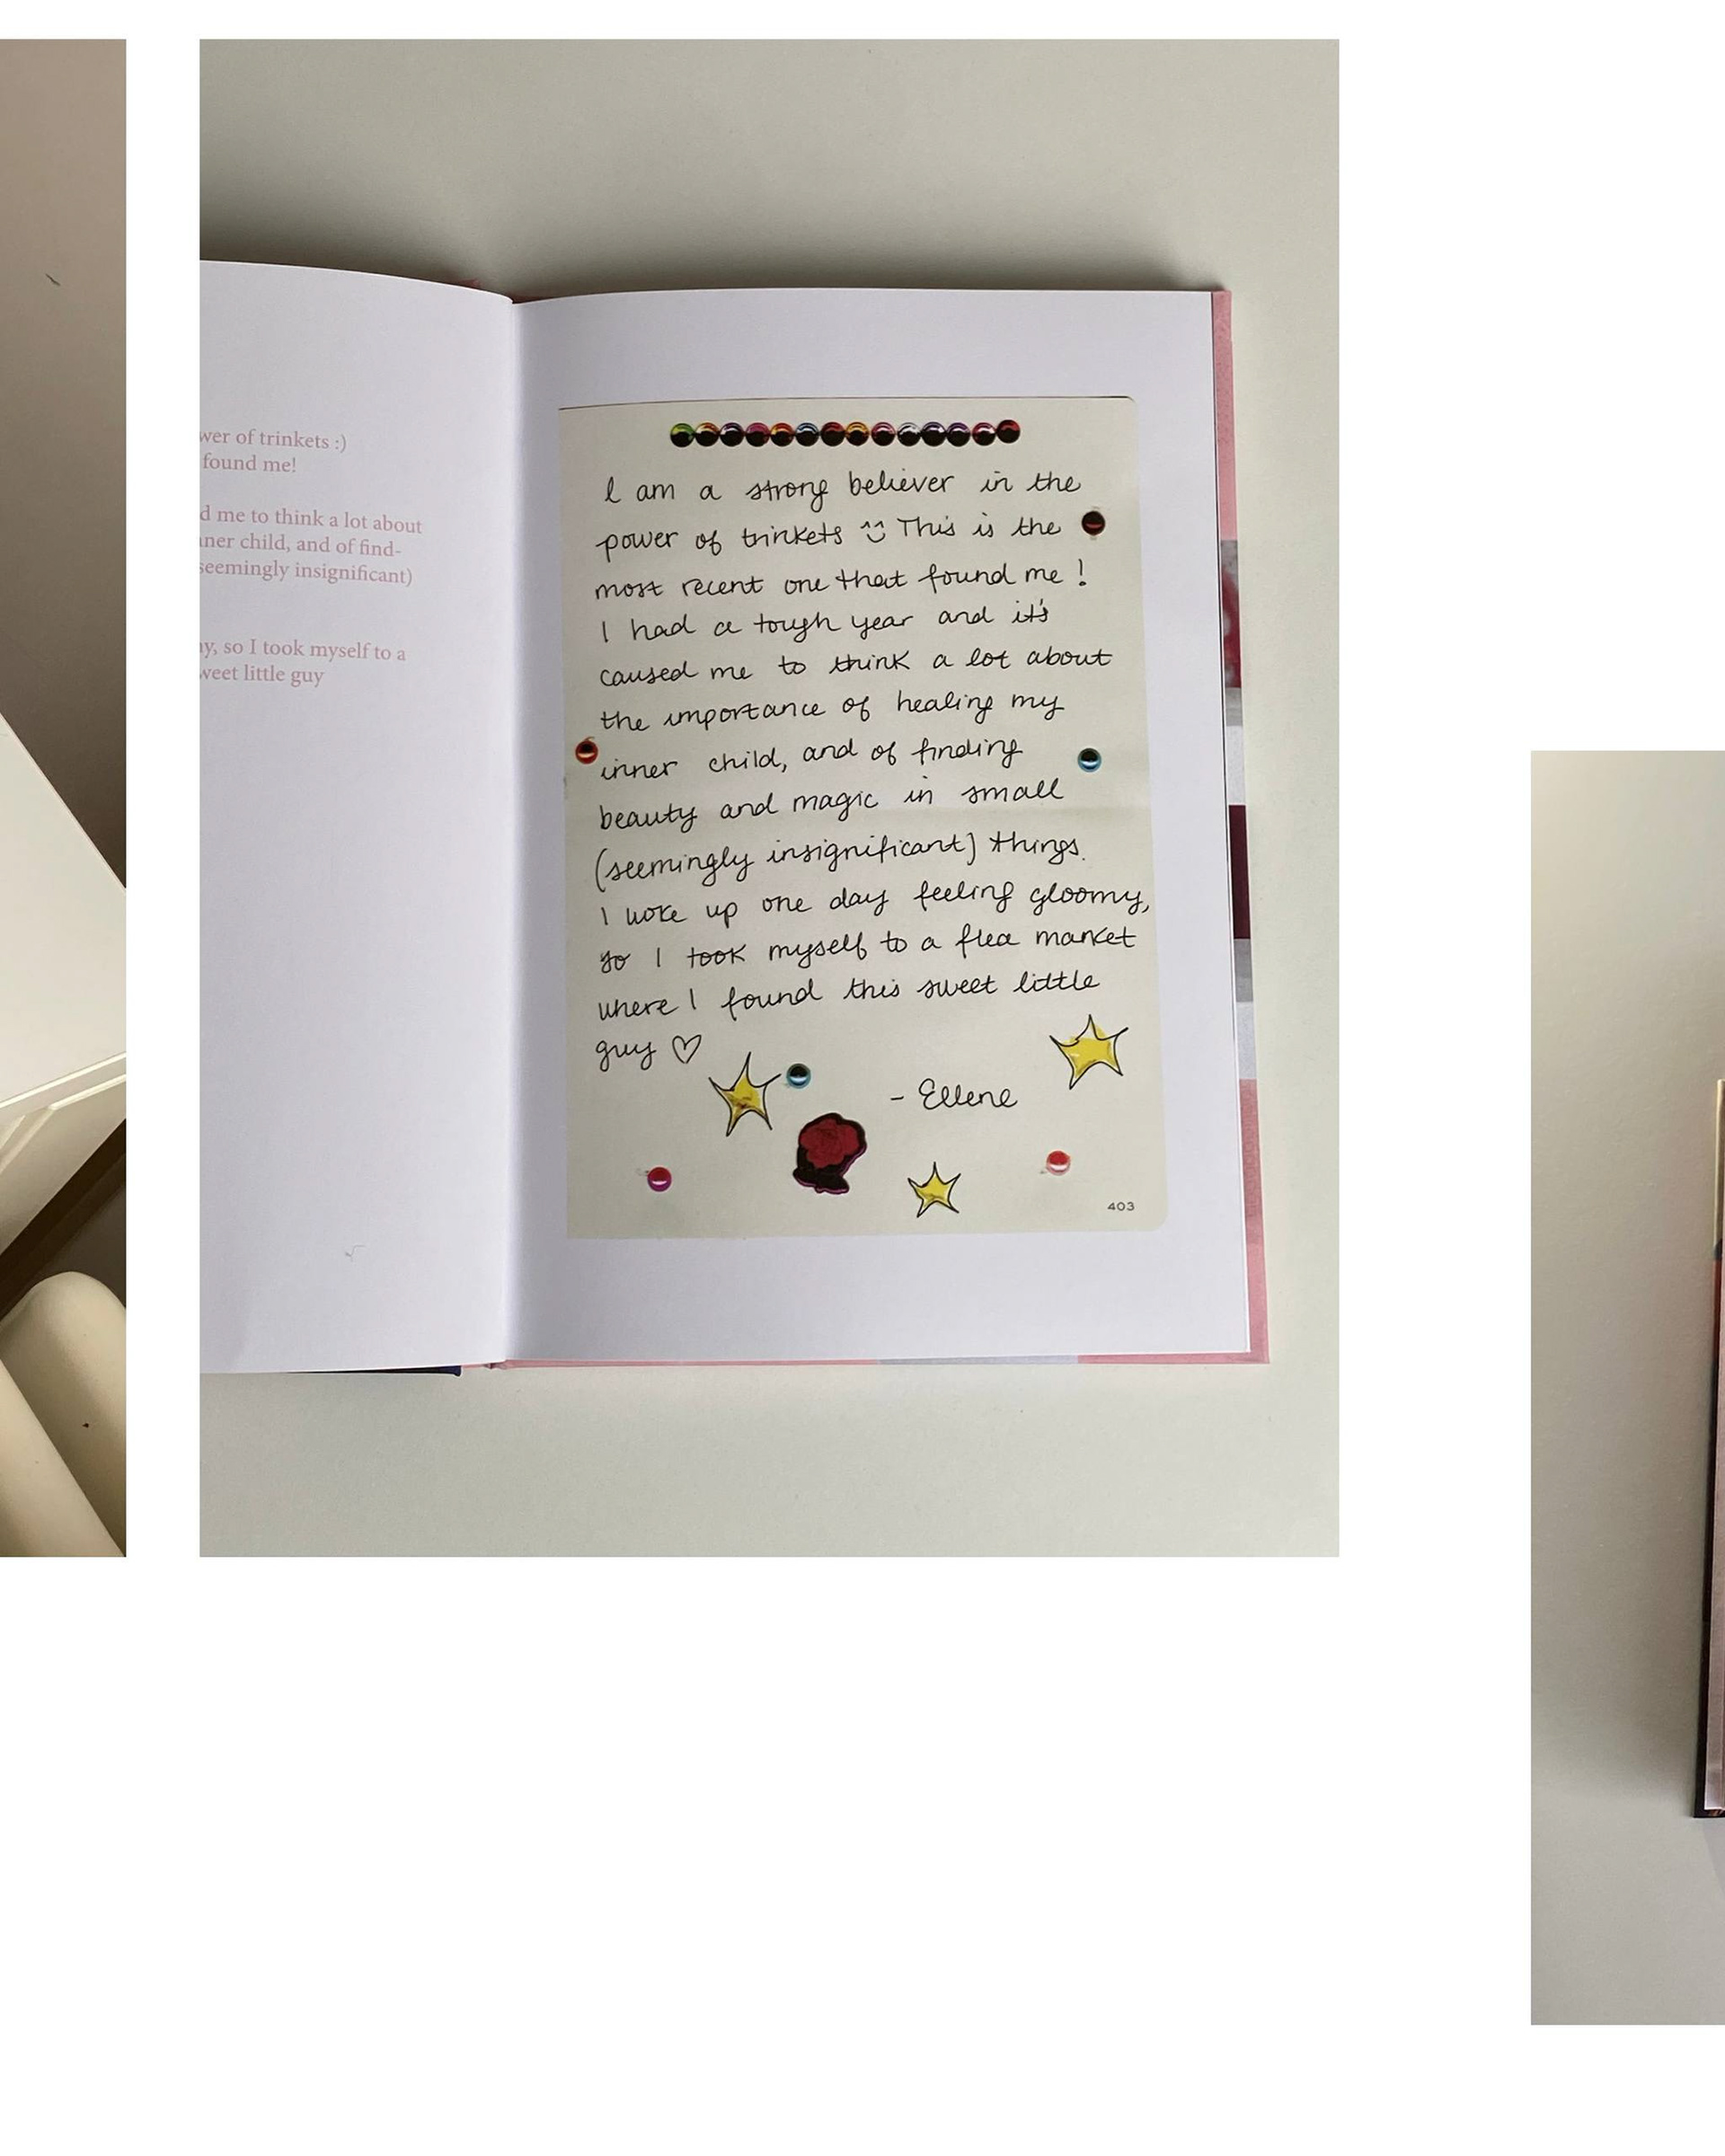 wer of trinkets :)
found me!
d me to think a lot about
ner child, and of find-
seemingly insignificant)
y, so I took myself to a
weet little guy
I am a strong believer in the
power of trinkets This is the
most recent one that found me!
I had a tough year and it's
caused me to think a lot about
the importance of healing my
inner child, and of finding
beauty and magic in small
(seemingly insignificant) things.
I woke up one day feeling gloomy,
so I took myself to a flea market
where I found this sweet little
guy ♡
- Ellene
403